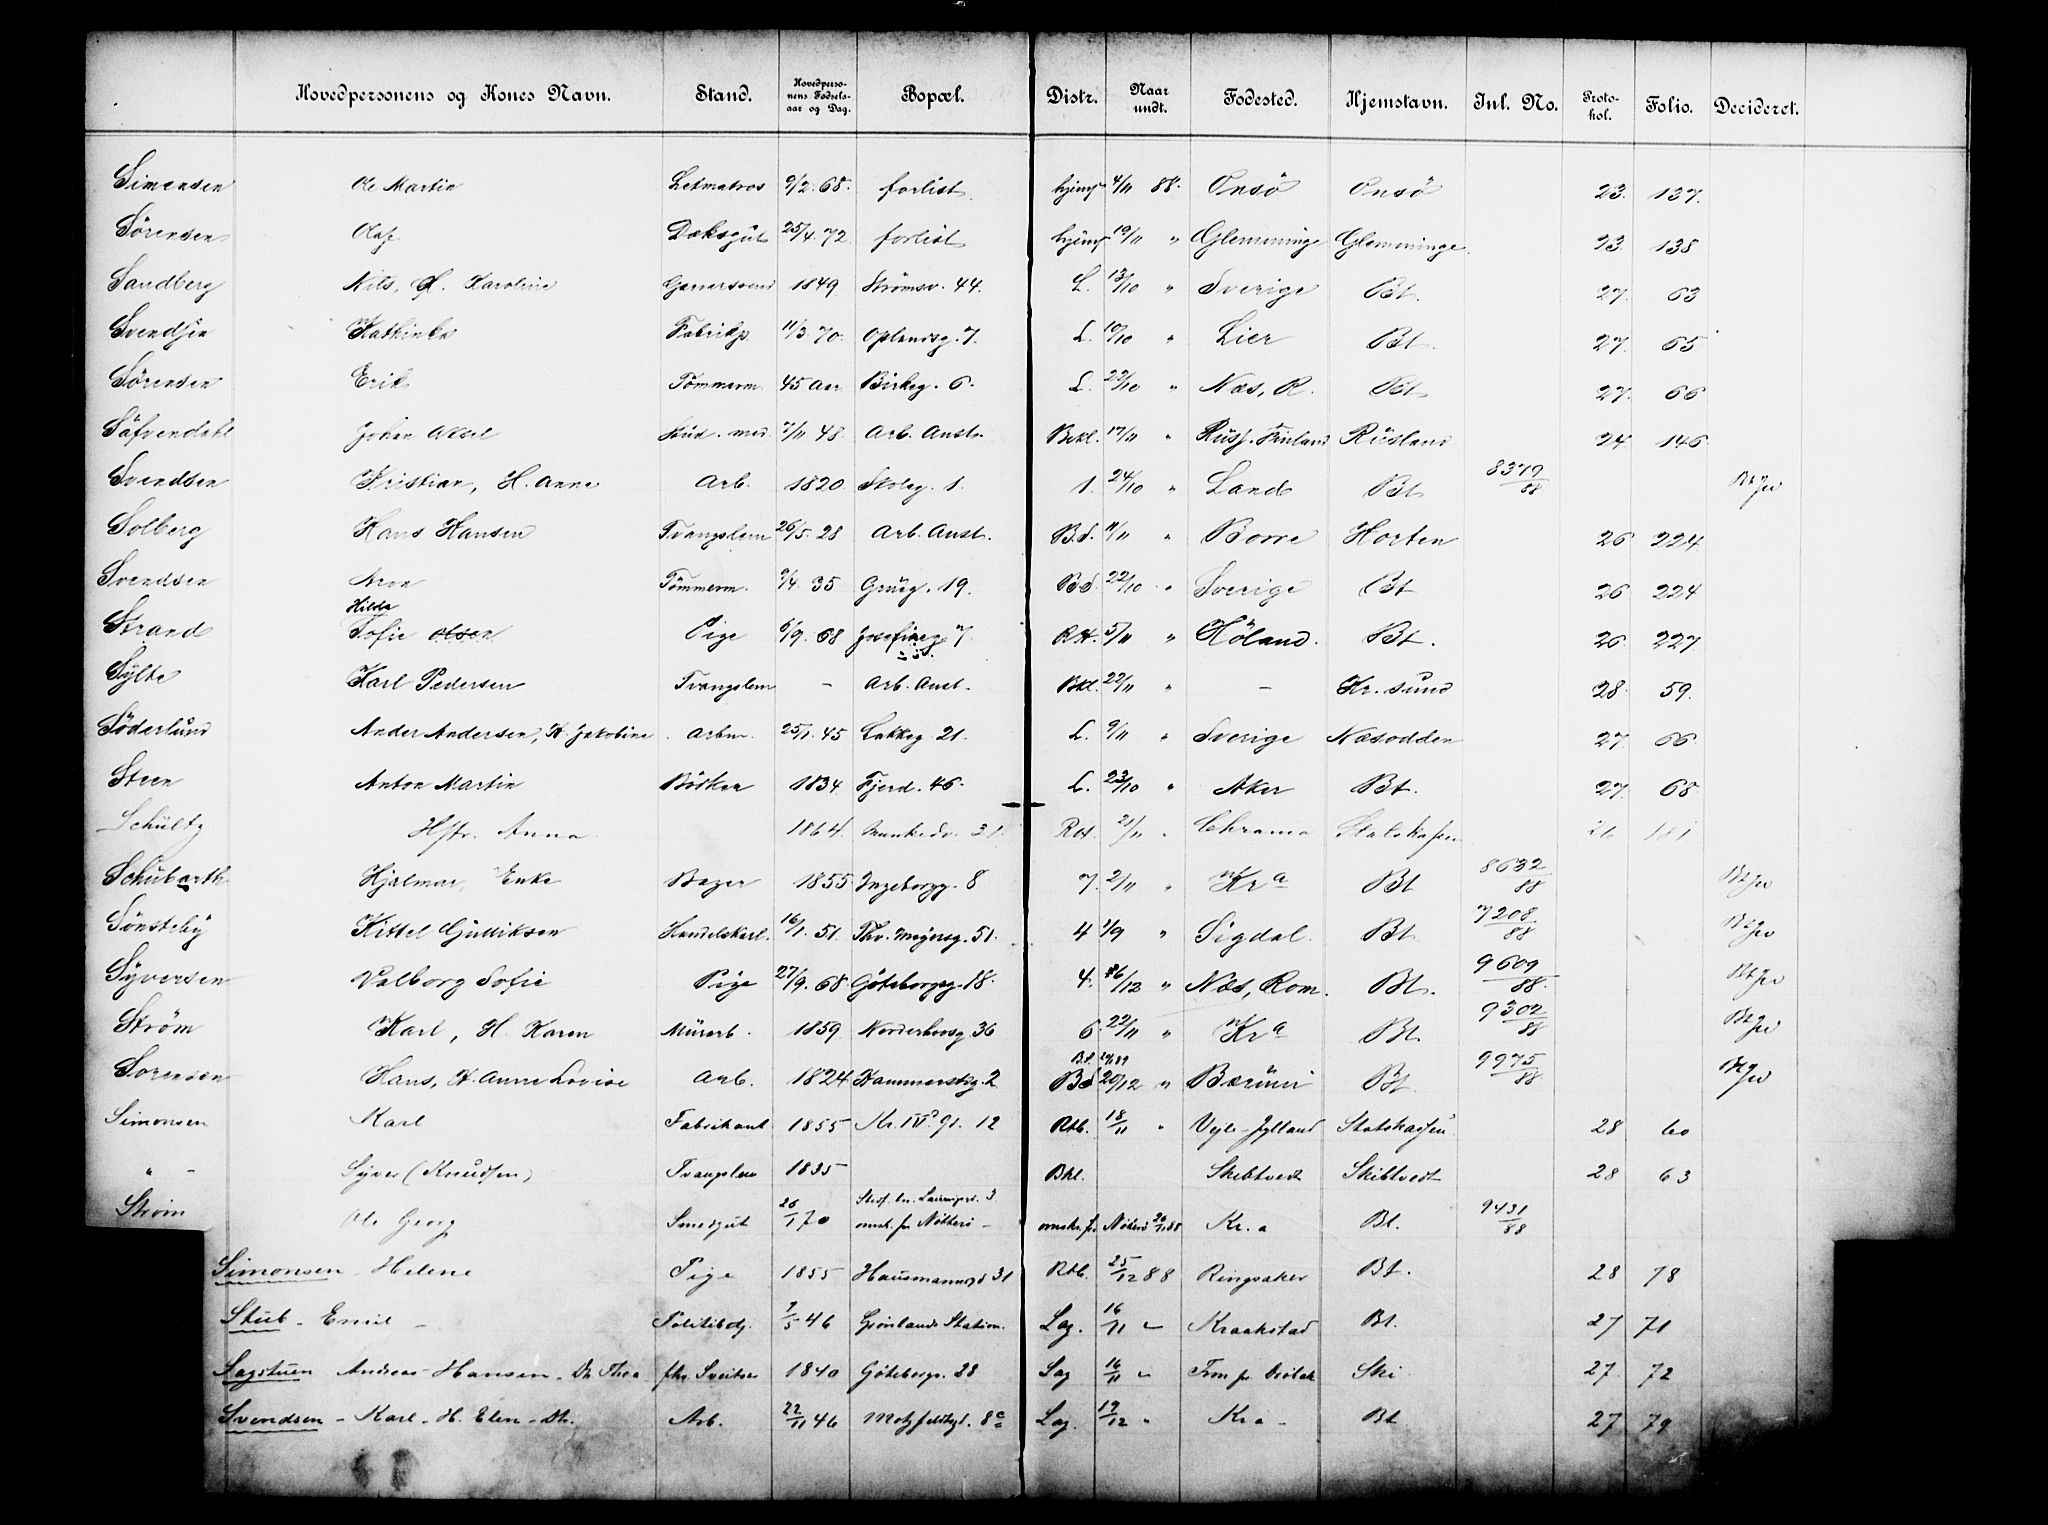 Hovedpersonens og Kones Navn. Stand. Hovedpersonens Fødselsaar og Dag. Bopæl. Distr. Naar undt. Fødested. Hjemstavn. Inl. No. Protokol. Folio. Decideret.
Simensen Ole Martin Letmatros 9/2.68. forlist hjemf 4/11 88. Onsö Onsö 23. 137.
Sörensen Olaf Dæksgut 25/4.72 forlist hjemf 19/11 " Glemminge Glemminge 23. 138
Sandberg Nils, H. Karoline Garversvend 1849 Strömsv. 44. L. 13/10 " Sverige Bt. 27. 63
Svendsen Kathinka Fabrikp. 11/3.70. Oplandsg. 7. L. 10/10 " Lier Bt. 27. 65
Sörensen Erik Tömmerm. 45 aar Birkeg. 6. L. 22/10 " Næs, R. Bt 27. 66
Säfvendahl Johan Aksel Stud. med. 7/11 48. Arb. Anst. Bekl. 17/11 " Russ. Finland Rusland 24 146
Svendsen Kristian, H. Anne Arb. 1820 Skoleg. 1. 1. 24/10 " Land Bt 8379/88
Solberg Hans Hansen Tvangslem 26/5.28 Arb. Anst. B.d. 11/11 " Borre Horten 26 224
Svendsen Aron Tömmerm. 9/4. 35 Grüeg. 19. Bd. 22/10 " Sverige Bt 26 224
Strand Hilda Sofie Olsen Pige 6/9. 68 Josefineg. 7 Rt. 5/11 " Höland. Bt. 26. 227
Sylte Karl Pedersen Tvangslem - Arb. Anst. Bkl. 22/11 " - Kr. sund 28. 59.
Söderlund Ander Andersen, H. Jakobine Arbm. 25/1.45 Lakkeg 21. L. 9/11 " Sverige Næsodden 27. 66
Steen Anton Martin Bödker 1834 Fjerd. 46. L. 23/10 " Aker Bt. 27. 68
Schultz Hstr. Anna 1864. Munkedv. 31. Rd. 21/11 " Chrania Statskassen 26 181
Schubarth Hjalmar, Enke Bager 1855 Ingeborgg. 8 7. 2/11 " Kra Bt 8632/88
Sönsteby Kittel Gulliksen Handelskarl. 16/1.51. Thv. Meyersg. 51. 4 1/9 " Sigdal. Bt. 7208/88
Syversen Valborg Sofie Pige 27/9.68 Göteborgsg. 18. 4. 6/12 " Næs, Rom. Bt. 9609/88.
Strøm Karl, H. Karen Murarb. 1859 Norderhovsg 36 6. 22/11 " Kra Bt. 9302/88
Sorensen Hans, H. Anne Lovise Arb. 1824 Kammersbg. 2 Bd 20/12 " Bærum Bt. 9975/88
Simonsen Karl Fabrikant 1855 Kr. IVs g. 12 Rtb. 18/11 " Vejle-Jylland Statskassen 28 60
" - Syver (Knudsen) Tvangslem 1835 Bkl. Skibtvedt Skibtvedt 28 63
Strøm Ole Georg Smedgut 26/1 70 omsk. fr Nötterö - omskr. fr. Nöterö 26/11 88 Kr.a Bt. 9431/88
Simonsen - Helene Pige 1855 Hausmannsgd 31 Rtb. 25/12 88 Ringsaker Bt. 28 78
Stub - Emil - Politibetj. 7/5 46 Grönlands Station. Lag. 16/11 " Kraakstad Bt. 27 71
Sagstuen Andreas Hansen - H. Thea fhv. Sveitser 1840 Göteborgs. 28 Lag 16/11 " Ski 27. 72
Svendsen - Karl - H. Elen - Arb. 22/11 46 Motzfeldtsgt. 8c Lag. 19/12 " Kra - Bt 27 79